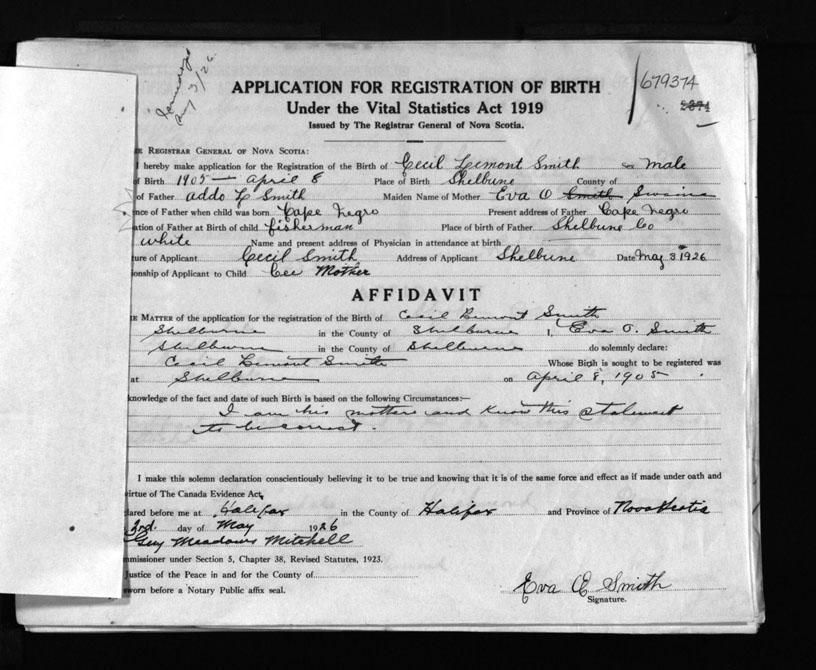 May 3/26
679374
APPLICATION FOR REGISTRATION OF BIRTH
2374
Under the Vital Statistics Act 1919
Issued by The Registrar General of Nova Scotia.
REGISTRAR GENERAL OF NOVA SCOTIA:
I hereby make application for the Registration of the Birth of Cecil Lemont Smith Sex Male
of Birth 1905 — April 8 Place of Birth Shelburne County of
of Father Addo L Smith Maiden Name of Mother Eva O Smith Swaine
nce of Father when child was born Cape Negro Present address of Father Cape Negro
ation of Father at Birth of child fisherman Place of birth of Father Shelburne Co
white Name and present address of Physician in attendance at birth
ture of Applicant Cecil Smith Address of Applicant Shelburne Date May 3 1926
ionship of Applicant to Child Mother
AFFIDAVIT
E MATTER of the application for the registration of the Birth of Cecil Lemont Smith
Shelburne in the County of Shelburne I, Eva O. Smith
Shelburne in the County of Shelburne do solemnly declare:
Cecil Lemont Smith Whose Birth is sought to be registered was
at Shelburne on April 8, 1905
knowledge of the fact and date of such Birth is based on the following Circumstances:—
I am his mother and know this statement
to be correct.
I make this solemn declaration conscientiously believing it to be true and knowing that it is of the same force and effect as if made under oath and
virtue of The Canada Evidence Act,
lared before me at Halifax in the County of Halifax and Province of Nova Scotia
3rd. day of May 1926
Guy Meadows Mitchell
mmissioner under Section 5, Chapter 38, Revised Statutes, 1923.
Justice of the Peace in and for the County of
Eva O Smith
sworn before a Notary Public affix seal.
Signature.